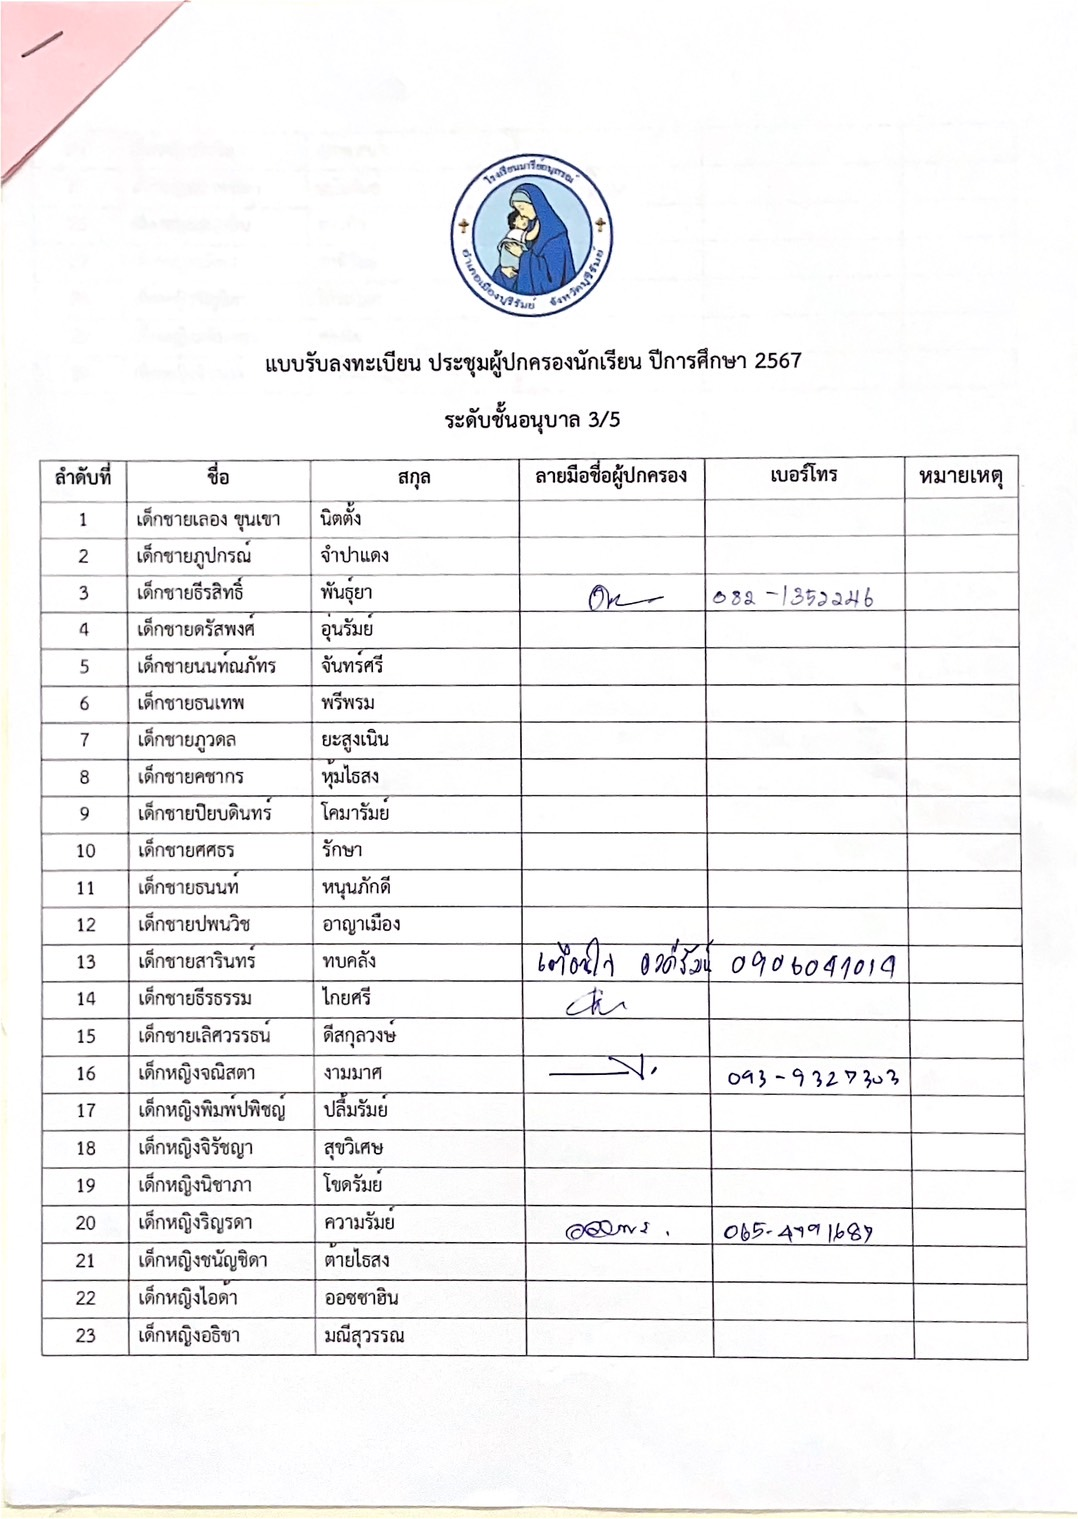 โรงเรียนมารีย์อนุสรณ์
อำเภอเมืองบุรีรัมย์ จังหวัดบุรีรัมย์
แบบรับลงทะเบียน ประชุมผู้ปกครองนักเรียน ปีการศึกษา 2567
ระดับชั้นอนุบาล 3/5
ลำดับที่ ชื่อ สกุล ลายมือชื่อผู้ปกครอง เบอร์โทร หมายเหตุ
1 เด็กชายเลออง ขุนเขา นิตตั้ง
2 เด็กชายภูปกรณ์ จำปาแดง
3 เด็กชายธีรสิทธิ์ พันธุ์ยา 082-1352246
4 เด็กชายดรัสพงศ์ อุ่นรัมย์
5 เด็กชายนนท์ณภัทร จันทร์ศรี
6 เด็กชายธนเทพ พรีพรม
7 เด็กชายภูวดล ยะสูงเนิน
8 เด็กชายคชากร หุ้มไธสง
9 เด็กชายปิยบดินทร์ โคมารัมย์
10 เด็กชายศศธร รักษา
11 เด็กชายธนนท์ หนุนภักดี
12 เด็กชายปพนวิช อาญาเมือง
13 เด็กชายสารินทร์ ทบคลัง
14 เด็กชายธีรธรรม ไกยศรี
15 เด็กชายเลิศวรรธน์ ดีสกุลวงษ์
16 เด็กหญิงจณิสตา งามมาศ 093-9327303
17 เด็กหญิงพิมพ์ปพิชญ์ ปลื้มรัมย์
18 เด็กหญิงจิรัชญา สุขวิเศษ
19 เด็กหญิงนิชาภา โขดรัมย์
20 เด็กหญิงริญรดา ความรัมย์
21 เด็กหญิงชนัญชิดา ต้ายไธสง
22 เด็กหญิงไอด้า ออซซาฮิน
23 เด็กหญิงอธิชา มณีสุวรรณ